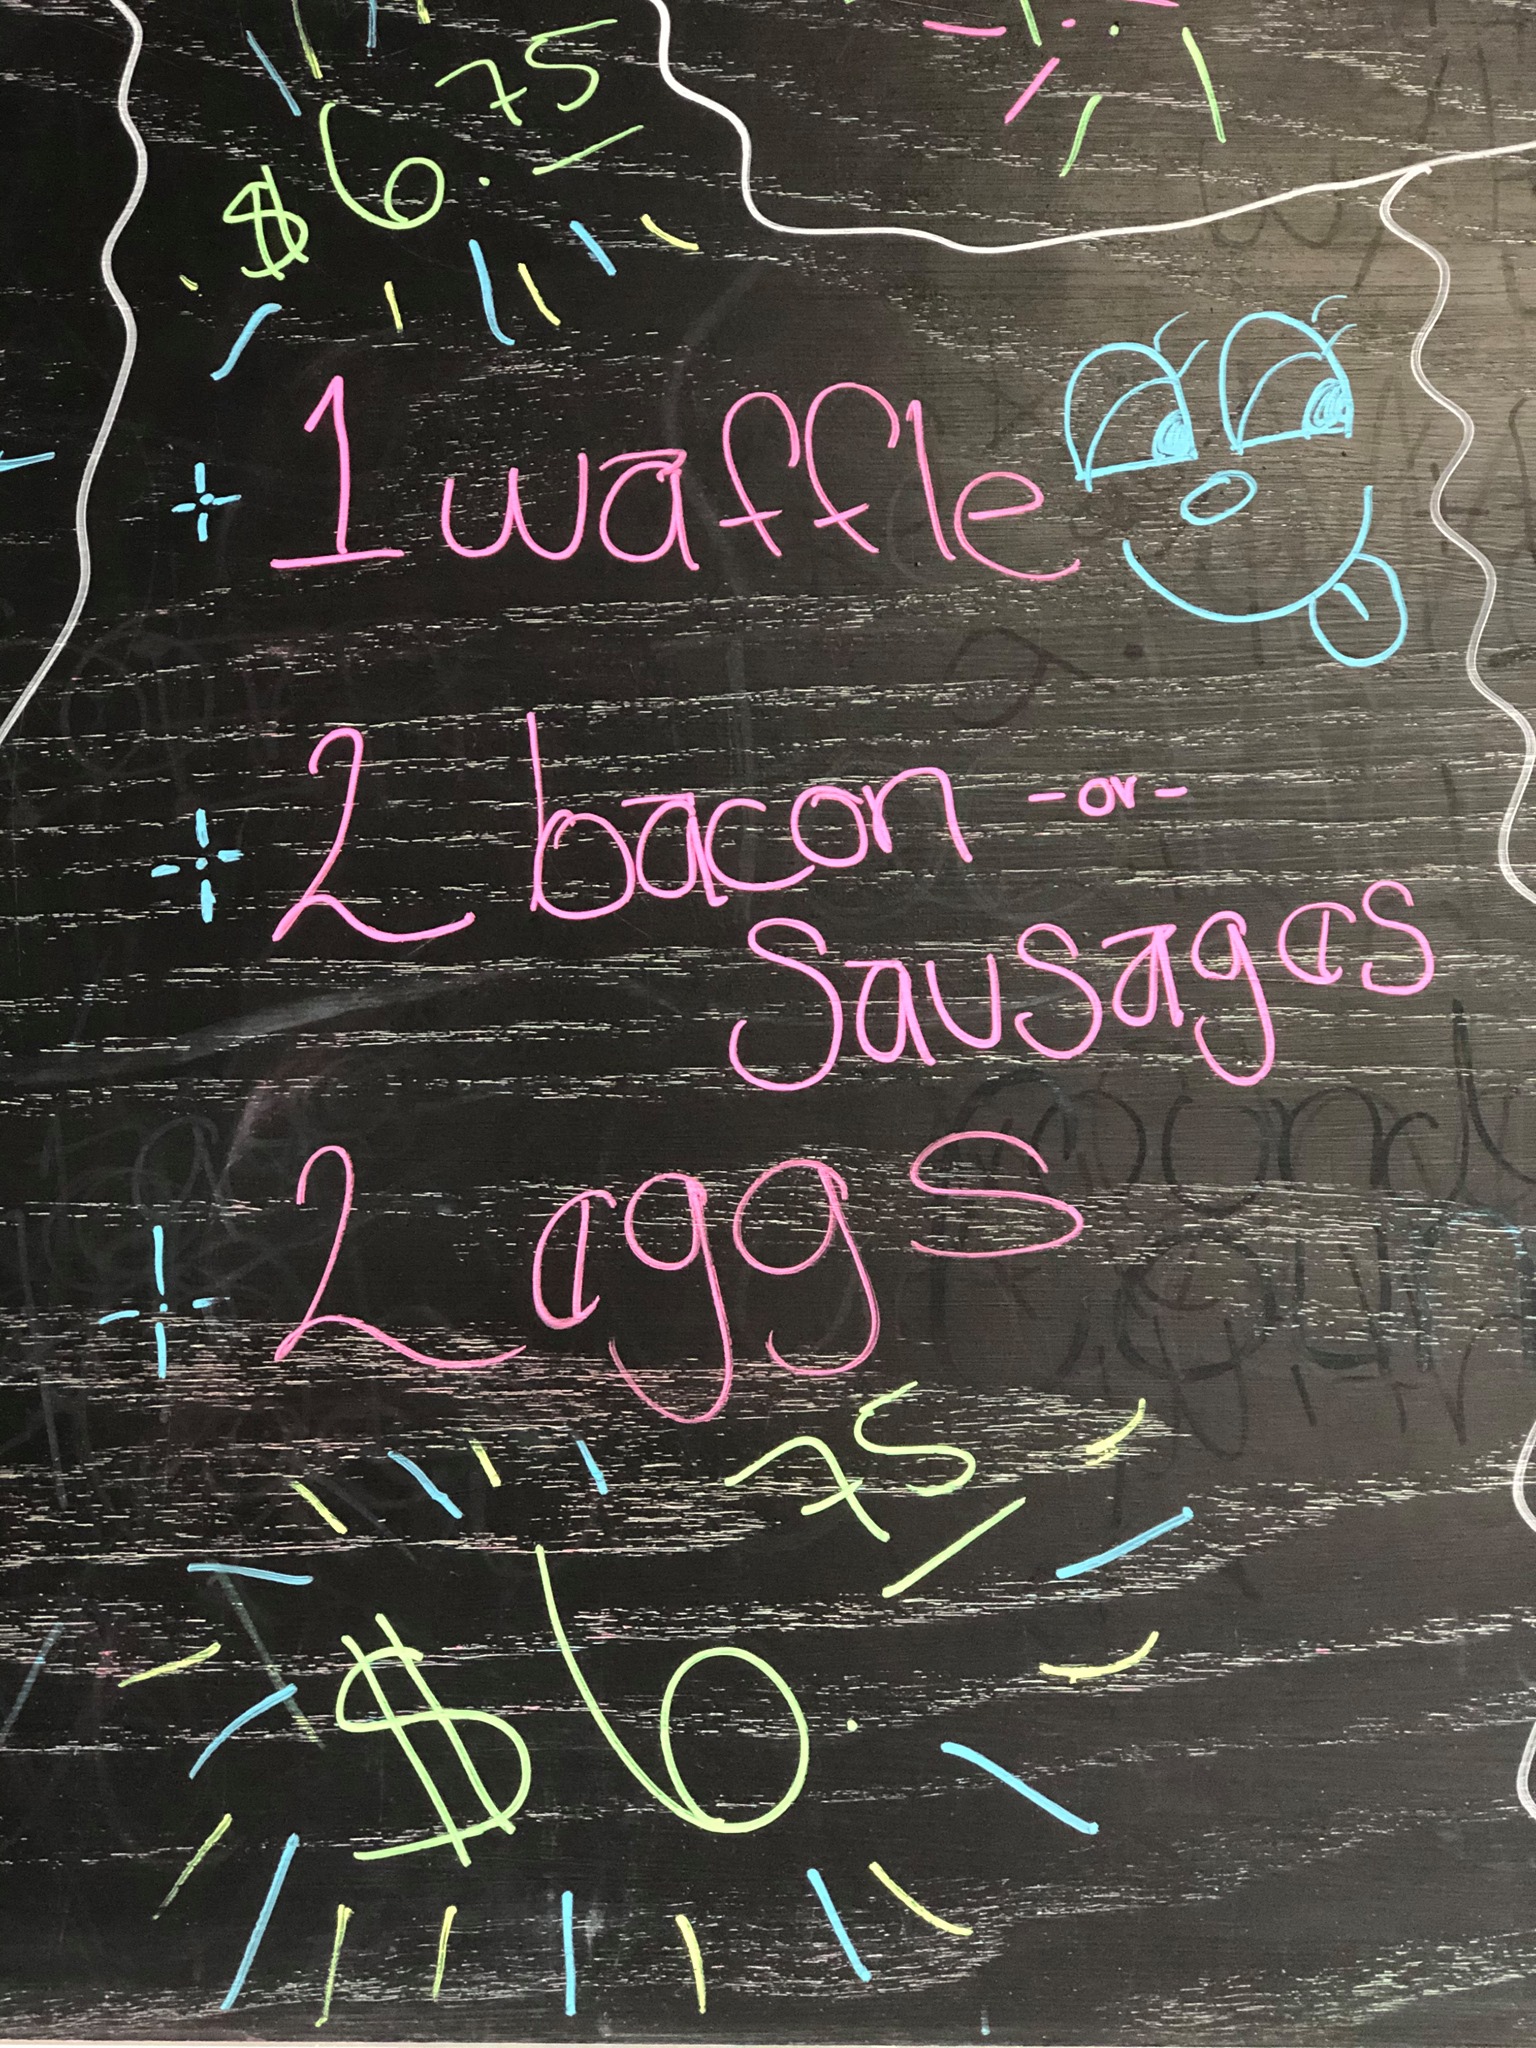 $6.75
1 waffle
2 bacon -or-
Sausages
2 eggs
$6.75